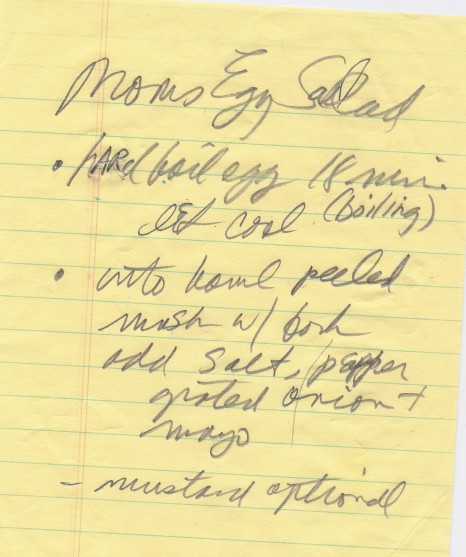 Moms Egg Salad
• hARd boil egg 18 min.
let cool (boiling)
• into bowl peeled
mash w/ fork
add salt, pepper
grated onion +
mayo
- mustard optional